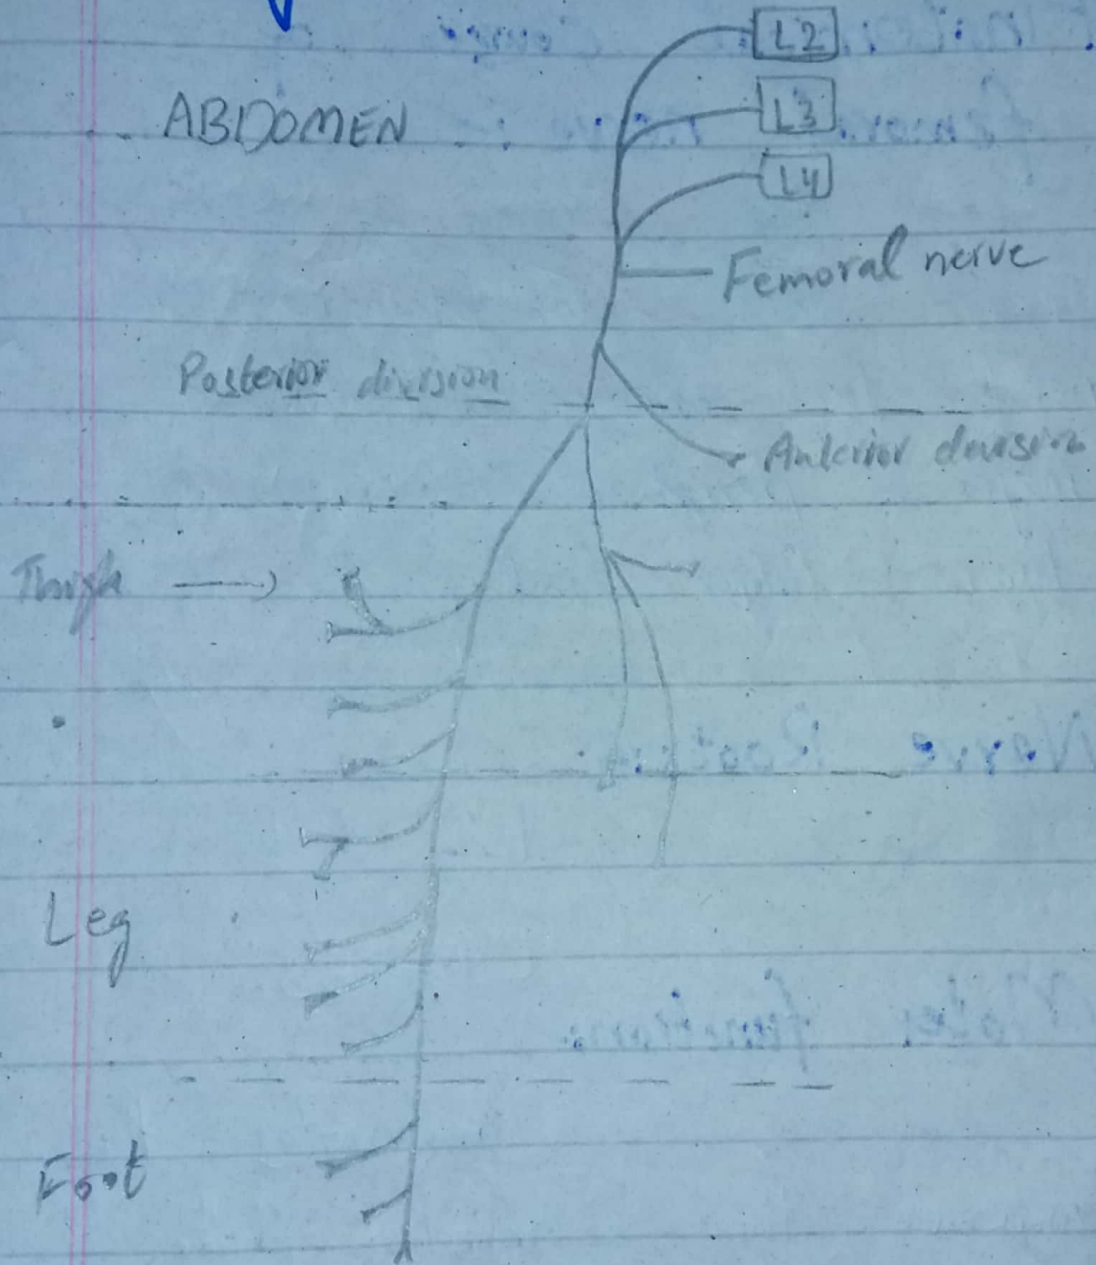 L2
ABDOMEN
L3
L4
Femoral nerve
Posterior division
Anterior division
Thigh
Leg
Foot